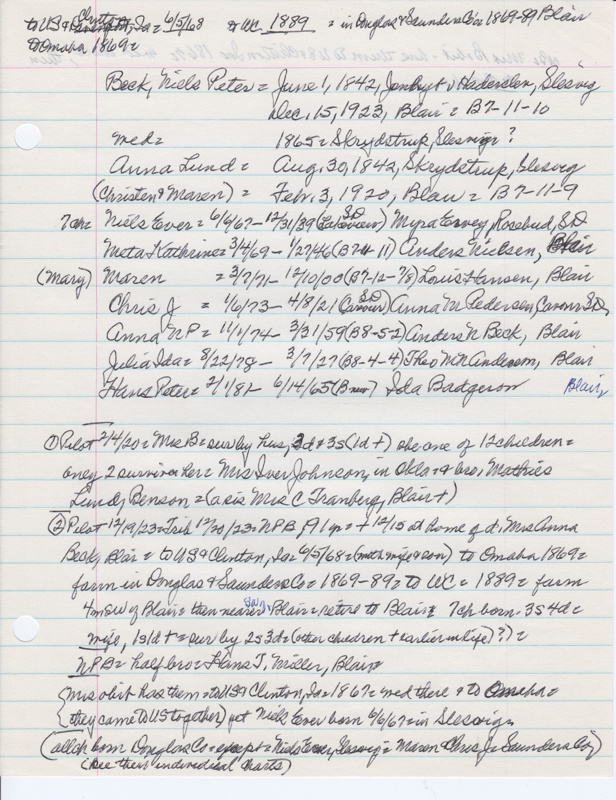 to US & Clinton, Ia = 6/5/68 to WC 1889 = in Douglas & Saunders Co's 1869-89, Blair
to Omaha 1869 =
Beck, Niels Peter = June 1, 1842, v Haderslev, Slesvig
Dec. 15, 1923, Blair = B7-11-10
med = 1865 = Skrydstrup, Slesvig ?
Anna Lund = Aug. 30, 1842, Skrydstrup, Slesvig
(Christen & Maren) = Feb. 3, 1920, Blair = B7-11-9
7ch = Niels Ever = 6/6/67 - 12/31/39 (Lakeview SD) Myra Ervey, Rosebud, S.D
Meta Kathrine = 3/4/69 - 1/27/46 (B7-11-11) Anders Nielsen, Blair
(Mary) Maren = 3/7/71 - 12/10/00 (B7-12-7/8) Louis Hansen, Blair
Chris J = 1/6/73 - 4/8/21 (Canova SD) Anna M Pedersen, Canova SD,
Anna NP = 11/1/74 - 3/31/59 (B8-5-2) Anders N Beck, Blair
Julia Ida = 8/22/78 - 3/7/27 (B8-4-4) Theo Wm Andersen, Blair
Hans Peter = 2/1/81 - 6/14/65 (B new) Ida Badgerow Blair,
① Pilot 2/4/20 = Mrs B = sur by hus, 3d & 3s (1d +) she one of 12 children =
only 2 survive her = Mrs Iver Johnson, in Okla & bro, Mathies
Lund, Benson = (a sis Mrs C Tranberg, Blair +)
② Pilot 12/19/23 = Trib 12/20/23 = NPB, 81 yr = + 12/15 at home of d, Mrs Anna
Beck, Blair = to US & Clinton, Ia = 6/5/68 = (with wife & son) to Omaha 1869 =
farm in Douglas & Saunders Co = 1869-89 = to WC = 1889 = farm
4m SW of Blair = then nearer Blair = retire to Blair = 7ch born = 3s 4d =
wife, 1s 1d + = sur by 2s 3d = (other children + earlier in life)?) =
NPB = half bro = Hans J, Miller, Blair
{Mrs obit has them = to US & Clinton, Ia = 1867 = med there & to Omaha =
{they came to US together) yet Niels Ever born 6/6/67 in Slesvig,
(all ch born Douglas Co = except = Niels Ever, Slesvig = Maren & Chris J = Saunders Co)
(see their individual charts)